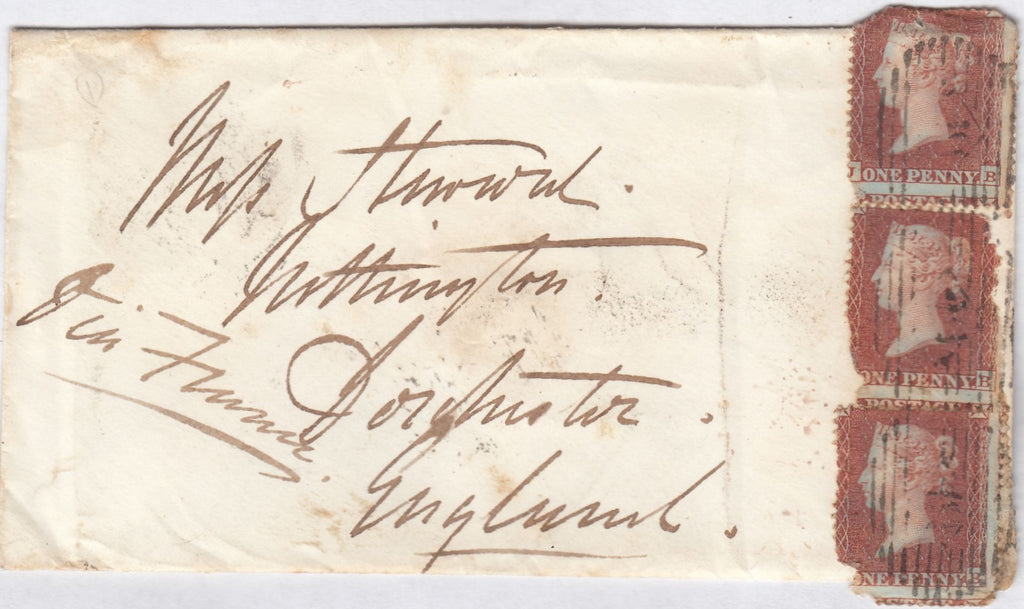 Miss Steward.
Nottington.
Dorchester.
England.
Via France.
ONE PENNY B
ONE PENNY B
POSTAGE
ONE PENNY